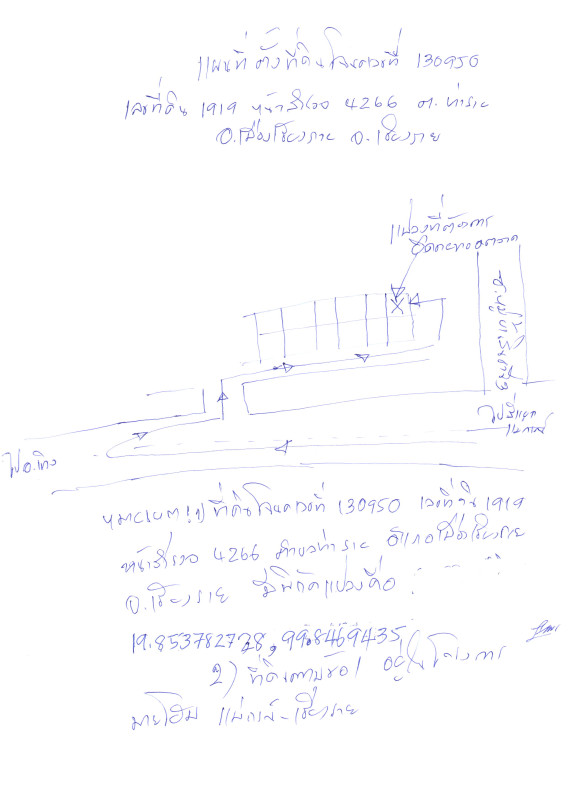 แผนที่ตั้งที่ดินโฉนดเลขที่ 130950
เลขที่ดิน 1919 หน้าสำรวจ 4266 ต. ท่าสาย
อ.เมืองเชียงราย จ.เชียงราย
แปลงที่ต้องการ
ไปสี่แยก
แม่กรณ์
ไป อ.เทิง
หมายเหตุ 1) ที่ดินโฉนดเลขที่ 130950 เลขที่ดิน 1919
หน้าสำรวจ 4266 ตำบลท่าสาย อำเภอเมืองเชียงราย
จ.เชียงราย มีพิกัดแปลงคือ
19.853782728, 99.8469435
2) ที่ดินตามข้อ 1 อยู่ในโครงการ
มายโฮม แม่กรณ์-เชียงราย